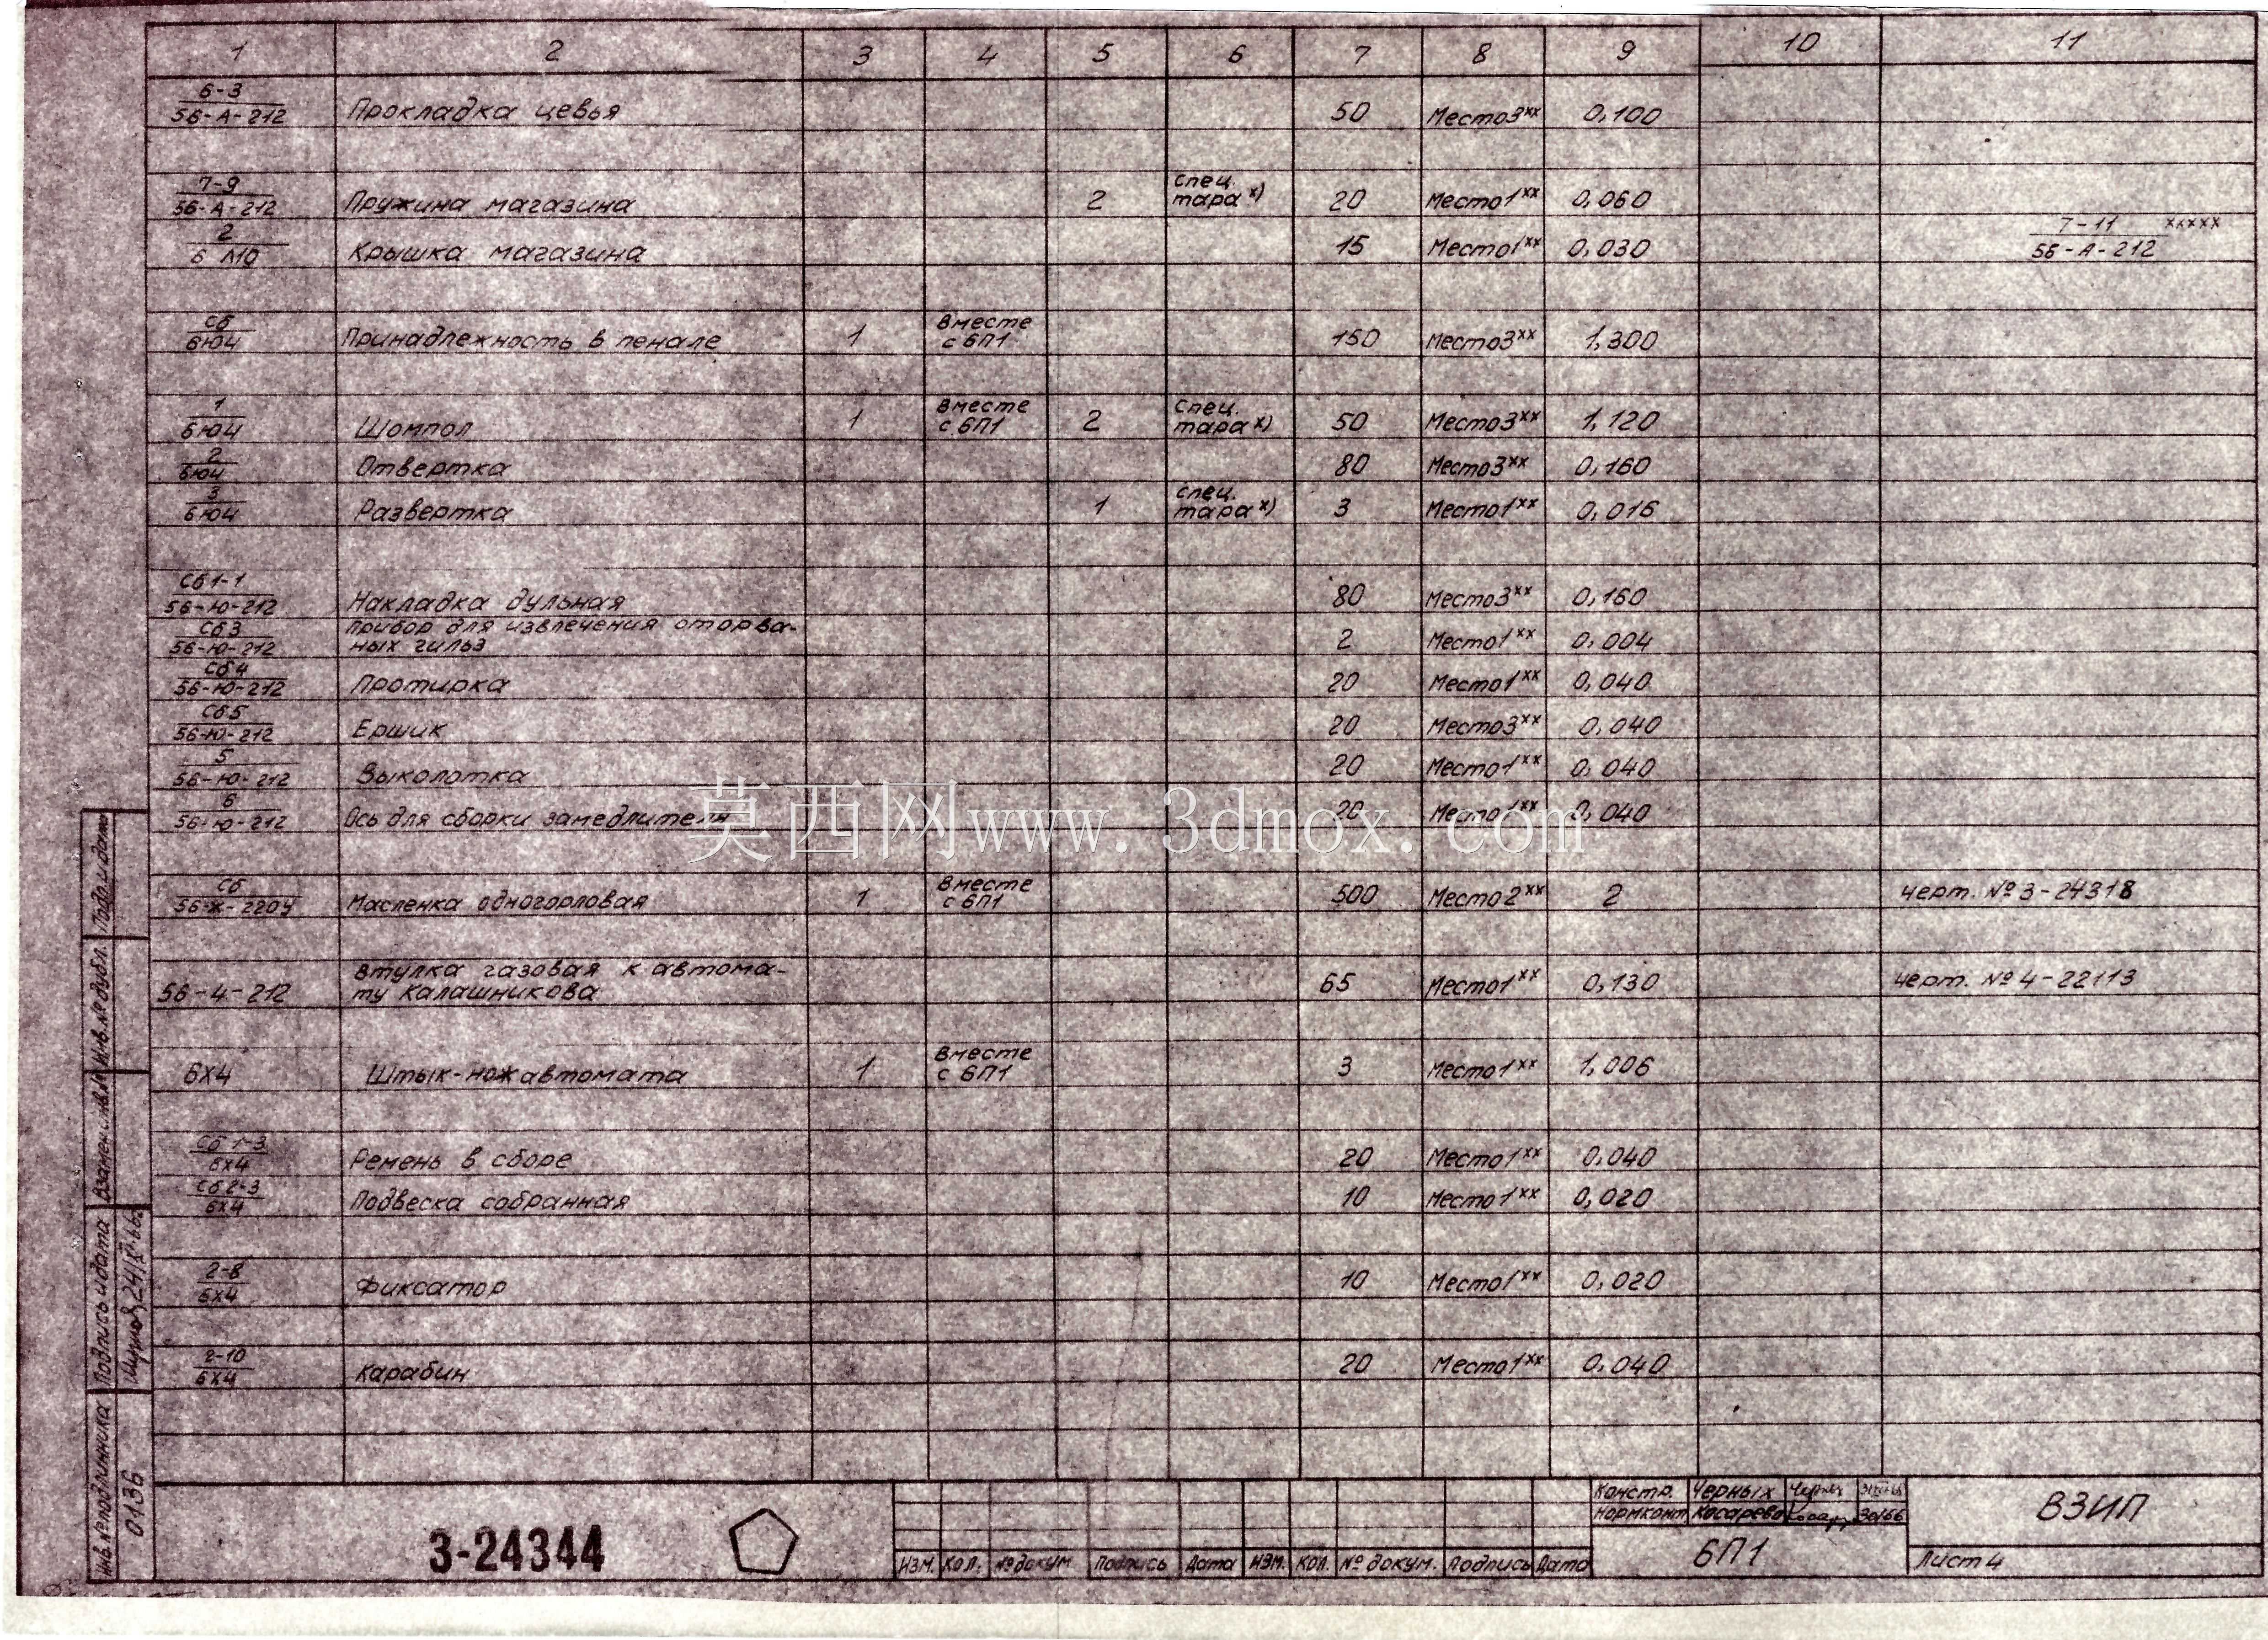 1 2 3 4 5 6 7 8 9 10 11
6-3
56-А-212 Прокладка цевья 50 Место3ˣˣ 0,100
7-9
56-А-212 Пружина магазина 2 спец. тара ˣ) 20 Место1ˣˣ 0,060
2
6 Л10 Крышка магазина 15 Место1ˣˣ 0,030 7-11 ˣˣˣˣˣ
56-А-212
Сб
6Ю4 Принадлежность в пенале 1 вместе с 6П1 150 Место3ˣˣ 1,300
1
6Ю4 Шомпол 1 вместе с 6П1 2 спец. тара ˣ) 50 Место3ˣˣ 1,120
2
6Ю4 Отвертка 80 Место3ˣˣ 0,160
3
6Ю4 Развертка 1 спец. тара ˣ) 3 Место1ˣˣ 0,016
Сб1-1
56-Ю-212 Накладка дульная 80 Место3ˣˣ 0,160
Сб3 Прибор для извлечения оторва-
56-Ю-212 ных гильз 2 Место1ˣˣ 0,004
Сб4
56-Ю-212 Протирка 20 Место1ˣˣ 0,040
Сб5
56-Ю-212 Ершик 20 Место3ˣˣ 0,040
5
56-Ю-212 Выколотка 20 Место1ˣˣ 0,040
6
56-Ю-212 Ось для сборки замедлителя 20 Место1ˣˣ 0,040
莫西网www.3dmox.com
Сб
56-Ж-220У Масленка одногорловая 1 вместе с 6П1 500 Место2ˣˣ 2 черт. №3-24318
втулка газовая к автома-
56-4-212 ту Калашникова 65 Место1ˣˣ 0,130 черт. №4-22113
6Х4 Штык-нож автомата 1 вместе с 6П1 3 Место1ˣˣ 1,006
Сб 1-3
6Х4 Ремень в сборе 20 Место1ˣˣ 0,040
Сб2-3
6Х4 Подвеска собранная 10 Место1ˣˣ 0,020
2-8
6Х4 Фиксатор 10 Место1ˣˣ 0,020
2-10
6Х4 Карабин 20 Место1ˣˣ 0,040
Инв. №подлинника Подпись и дата Взамен инв.№ Инв.№дубл. Подп. и дата
0136
3-24344
Констр. Черных
Нормконт Косарева
6П1
ВЗИП
Лист 4
Изм. Кол. №докум Подпись Дата Изм. Кол. №докум. Подпись Дата